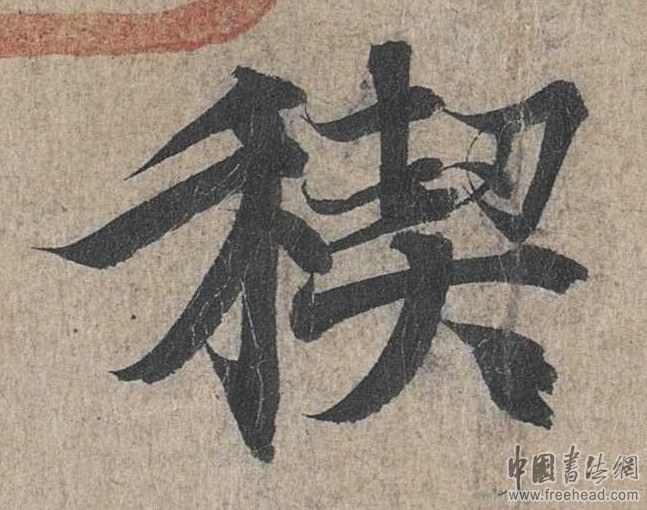 稧
中國書法網
www.freehead.com